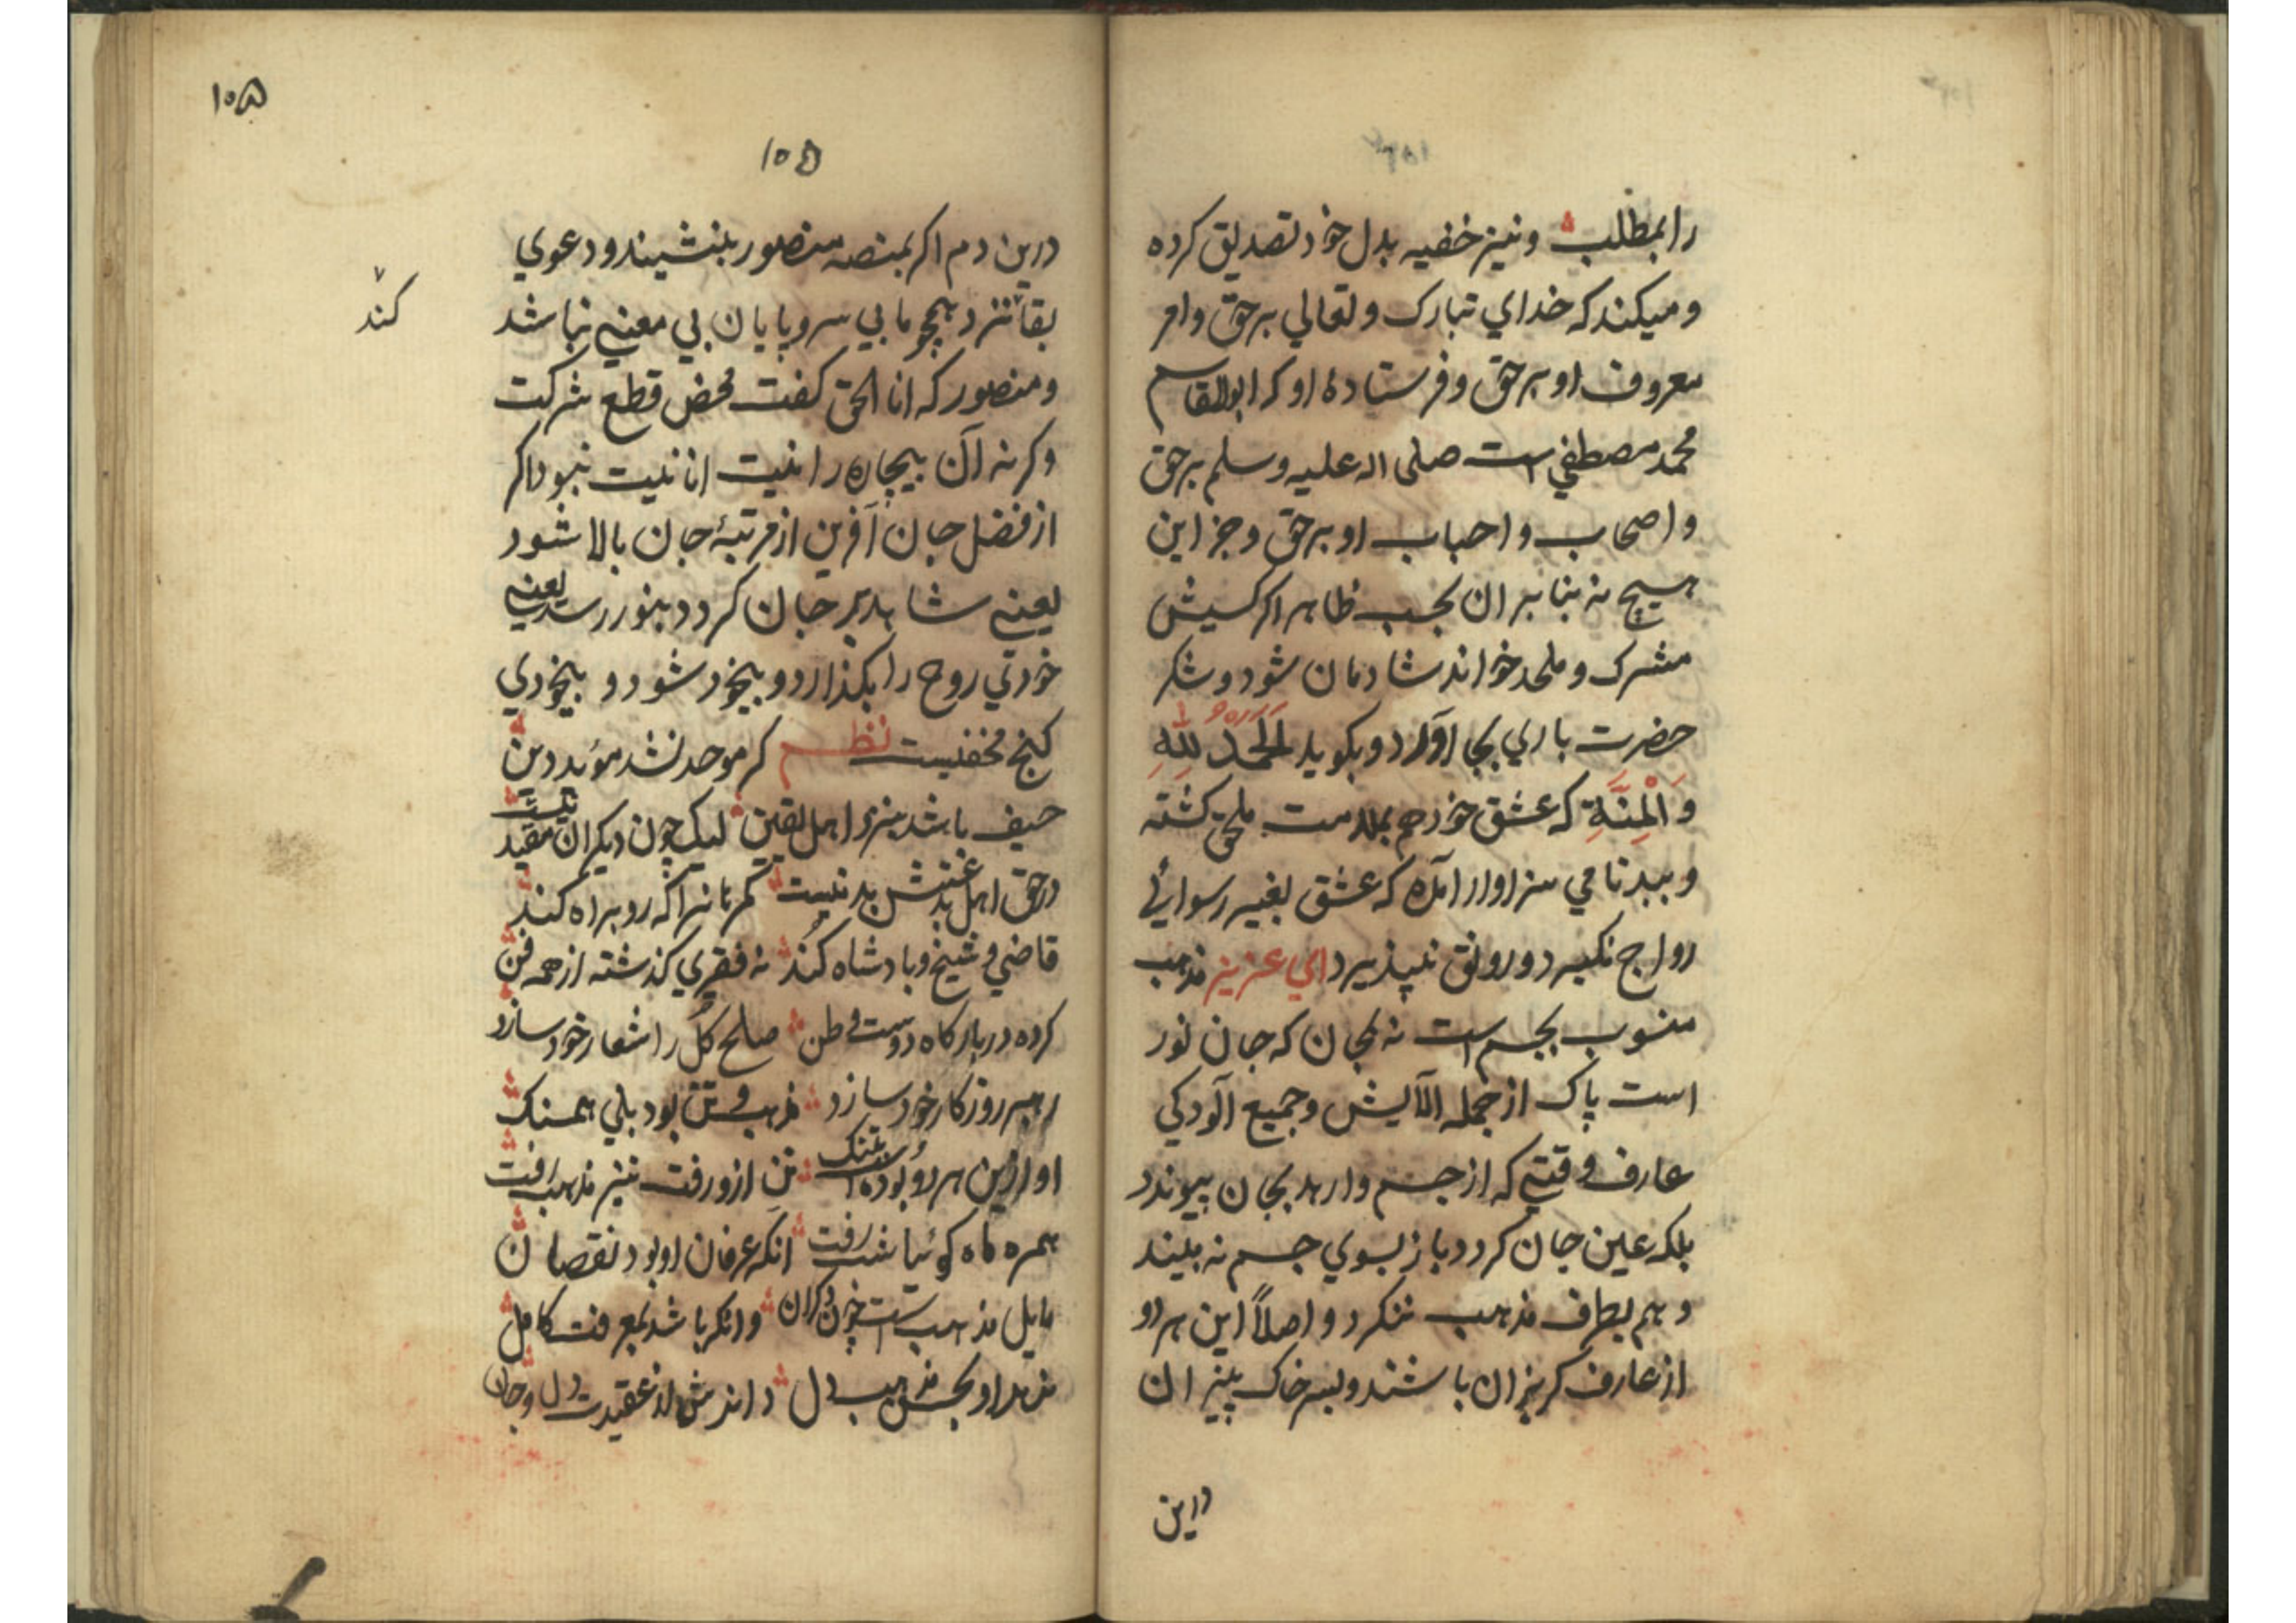 را بمطلب و نیز خفیه بدل خود تصدیق کرده
و میکند که خدای تبارک و تعالی برحق و امر
معروف او برحق و فرستادهٔ او که ابوالقاسم
محمد مصطفی است صلی اله علیه وسلم برحق
و اصحاب و احباب او برحق و جز این
هیچ نه بنابر ان بحسب ظاهر اگر کسیش
مشرک و ملحد خواند شادمان شود و شکر
حضرت باری بجا آورد و بگوید الحمد لله
و المنة که عشق خودم بملامت ملحق گشته
و ببدنامی سزاوار آمده که عشق بغیر رسوائی
رواج نگیرد و رونق نپذیرد ای عزیز مذهب
منسوب بجسم است نه بجان که جان نور
است پاک از جمله آلایش و جمیع آلودگی
عارف وقتی که از جسم وارهد بجان پیوندد
بلکه عین جان گردد باز بسوی جسم نه بیند
و هم بطرف مذهب ننگرد و اصلاً این هر دو
از عارف گریزان باشند و بسر خاک بیزان
درین
۱۰۵
۱۰۵
درین دم اگر بمنصهٔ منصور بنشیند و دعوی
بقا کند همچو ما بی سر و پایان بی معنی نباشد
کند
و منصور که انا الحق گفت محض قطع شرکت
وگرنه آن بیچاره را نیت انانیت نبود اگر
از فضل جان آفرین از مرتبهٔ جان بالا شود
یعنی شاهد بر جان گردد بنور رسد یعنی
خودی روح را بگذارد و بیخود شود و بیخودی
گنج مخفیست نظم گر موحد نشد مؤید دین
حیف باشد بنزد اهل یقین لیک چون دیگران مقید نیست
در حق اهل بدعتش بد نیست گمرهانرا که رو براه کند
قاضی و شیخ و بادشاه کند نه فقیری گذشته از همه فن
کرده در بارگاه دوست وطن صلح کل را شعار خود سازد
رهبر روزگار خود سازد مذهب و تن بود بلی همسنگ
او ازین هر دو بوده است بتنگ تن ازو رفت نیز مذهب رفت
همره ماه گوئیا شب رفت آنکه عرفان او بود نقصان
مایل مذهب است چون دگران وانکه باشد بمعرفت کامل